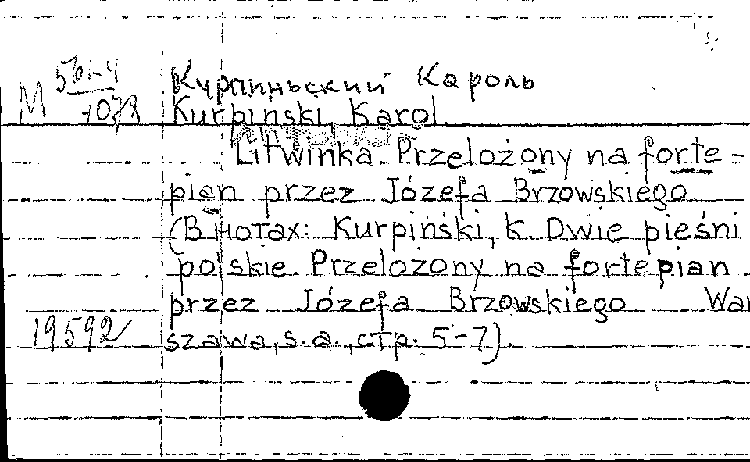 М 56-4 Курпиньский Кароль
1078 Kurpinski, Karol
Litwinka. Przelożony na forte-
pian przez Józefa Brzowskiego
(В нотах: Kurpiński, K. Dwie pieśni
polskie. Przelozony na fortepian
przez Józefa Brzowskiego War
19592 szawa, s.a., стр. 5-7).